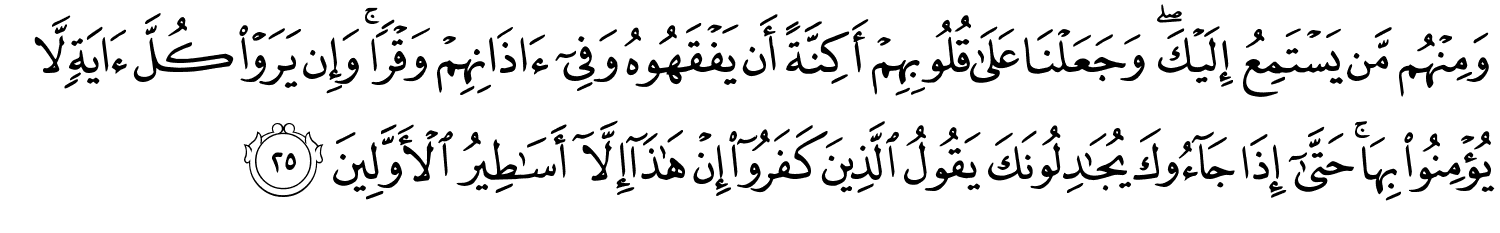 وَمِنۡهُم مَّن يَسۡتَمِعُ إِلَيۡكَۖ وَجَعَلۡنَا عَلَىٰ قُلُوبِهِمۡ أَكِنَّةً أَن يَفۡقَهُوهُ وَفِيٓ ءَاذَانِهِمۡ وَقۡرٗاۚ وَإِن يَرَوۡاْ كُلَّ ءَايَةٖ لَّا
يُؤۡمِنُواْ بِهَاۚ حَتَّىٰٓ إِذَا جَآءُوكَ يُجَٰدِلُونَكَ يَقُولُ ٱلَّذِينَ كَفَرُوٓاْ إِنۡ هَٰذَآ إِلَّآ أَسَٰطِيرُ ٱلۡأَوَّلِينَ ٢٥